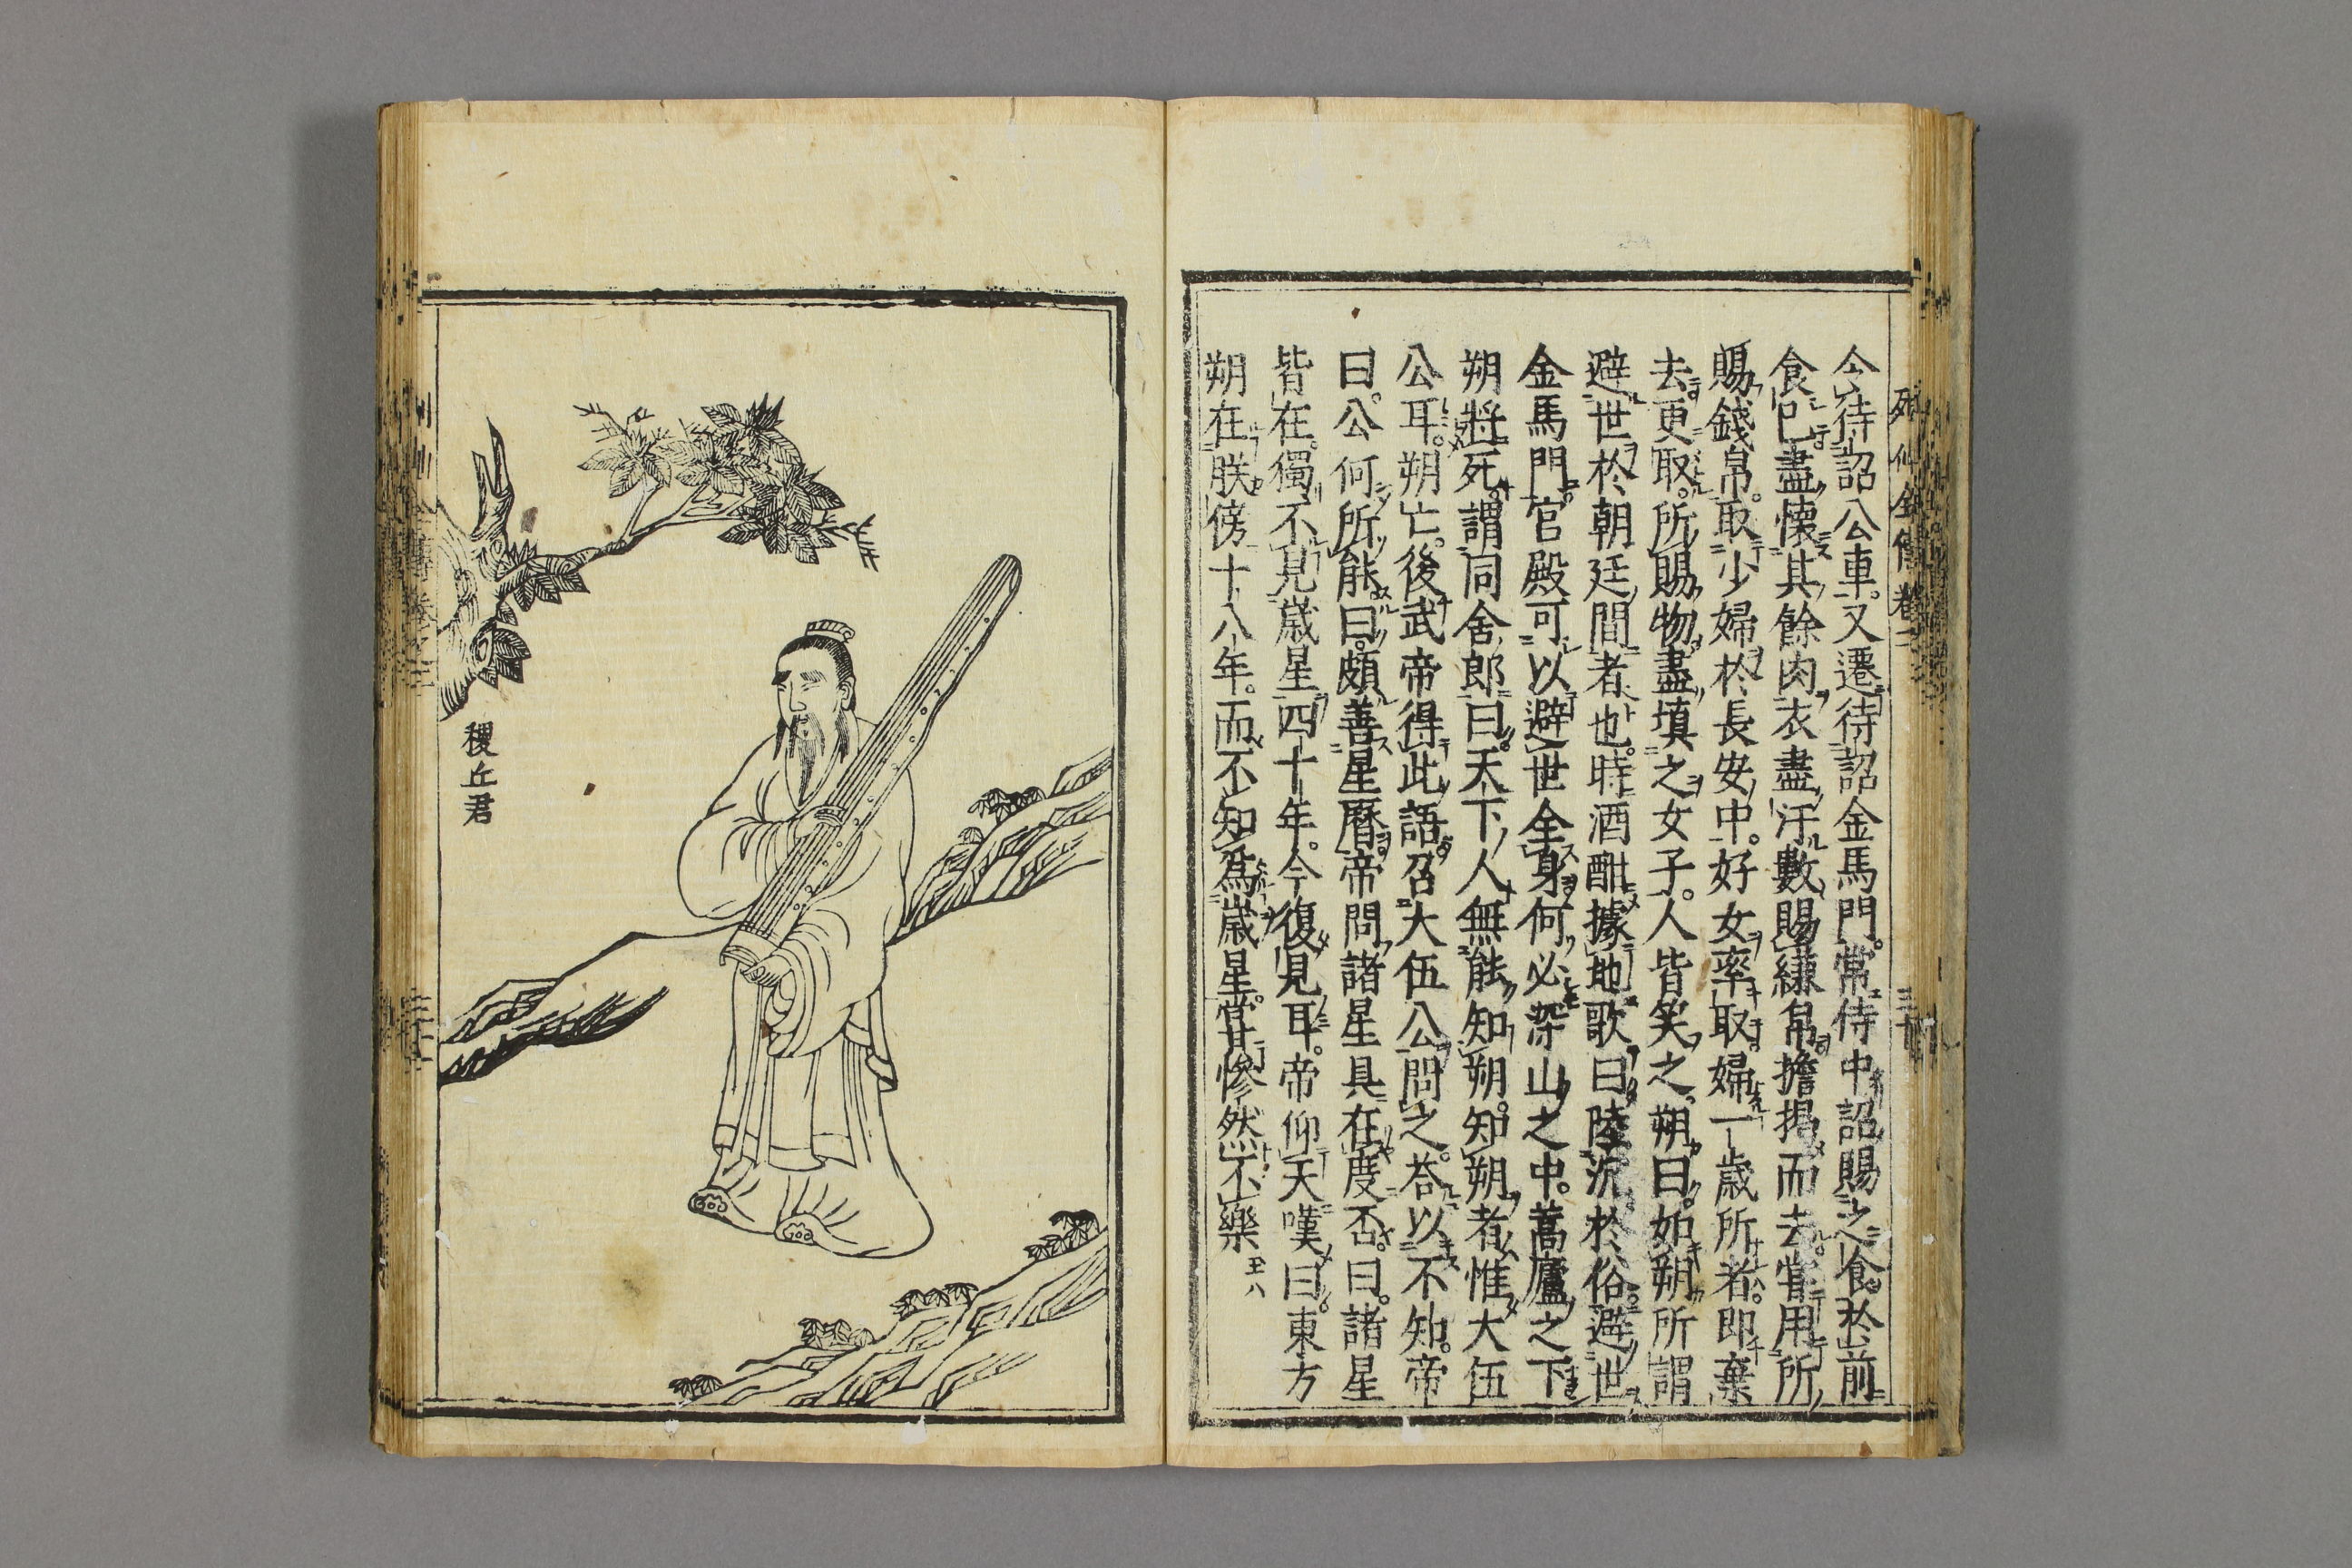 令待詔公車。又遷待詔金馬門。常侍中詔賜之食。於前
食已盡懐其餘肉。衣盡汙。數賜縑帛。擔掲而去。甞用所
賜錢帛。取少婦於長安中。好女率取。婦一歳所者。即棄
去。更取。所賜物。盡填之女子。人皆笑之。朔曰。如朔所謂
避世於朝廷間者也。時酒酣據地歌曰。陸沉於俗。避世
金馬門。官殿可以避世全身。何必深山之中。蒿廬之下
朔將死。謂同舍郎曰。天下人無能知朔。知朔者惟大伍
公耳。朔亡。後武帝得此語。召大伍公問之。荅以不知。帝
曰。公何所能。曰。頗善星曆。帝問諸星具在度否。曰。諸星
皆在。獨不見歳星四十年。今復見耳。帝仰天嘆曰。東方
朔在朕傍十八年。而不知爲歳星。當甘慘然不樂
稷丘君